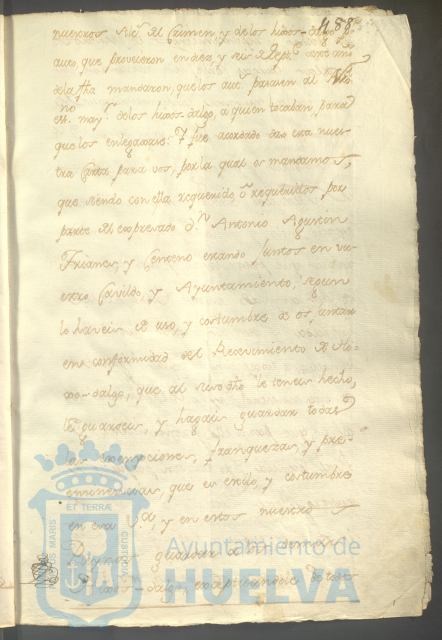 488
nuestros del Crimen, y de los hijos-dalgo por
auto, que proveieron en diez, y seis de Sept.e deste año
de la fha mandaron, que los autos pasasen al
no
es.  may.r de los hijosdalgo, a quien tocaban, para
que los entregase: Y fue acordado dar esta nues-
tra Carta para vos, por la qual os mandamos,
que siendo con ella requerido, o requeridos por
parte del expresado D.n Antonio Agustin
Trianes, y Centeno estando juntos en vu-
estro Cavildo, y Ayuntamiento, segun
lo haveis de uso, y costumbre de os juntar
en conformidad del Recevimiento de Hi-
jo-dalgo, que al suso dho le teneis hecho,
le guardeis, y hagais guardar todas
las exempciones, franquezas, y pre-
eminencias, que es estilo, y costumbre
en esa V.a y en estos nuestros
Reynos guardar a los demas
Hijos-dalgo, exceptuandole de todos
ET TERRÆ
MARIS
CUSTODIA
Ayuntamiento de
HUELVA